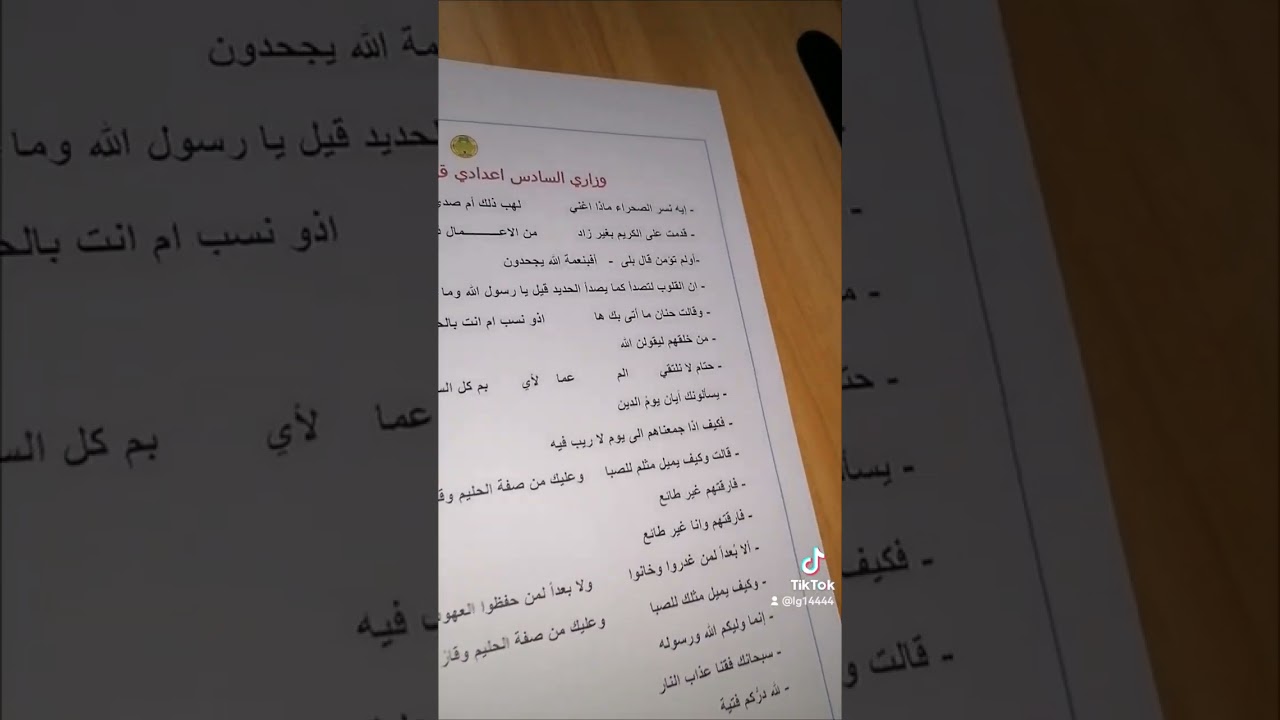 وزاري السادس اعدادي
- إيه نسر الصحراء ماذا اغني لهب ذلك أم
- قدمت على الكريم بغير زاد من الاعـــــــمال
-أولم تؤمن قال بلى - أفبنعمة الله يجحدون
- ان القلوب لتصدأ كما يصدأ الحديد قيل يا رسول الله وما
- وقالت حنان ما أتى بك ها اذو نسب ام انت
- من خلقهم ليقولن الله
- حتام لا تلتقي الم عما لأي بم كل
- يسألونك أيان يومُ الدين
- فكيف اذا جمعناهم الى يوم لا ريب فيه
- قالت وكيف يميل مثلم للصبا وعليك من صفة الحليم
- فارقتهم غير طائع
- فارقتهم وانا غير طائع
- ألا بُعداً لمن غدروا وخانوا ولا بعداً لمن حفظوا
- وكيف يميل مثلك للصبا وعليك من صفة الحليم
- إنما وليكم الله ورسوله
- سبحانك فقنا عذاب النار
- لله درُكم فتية
TikTok
@lg14444